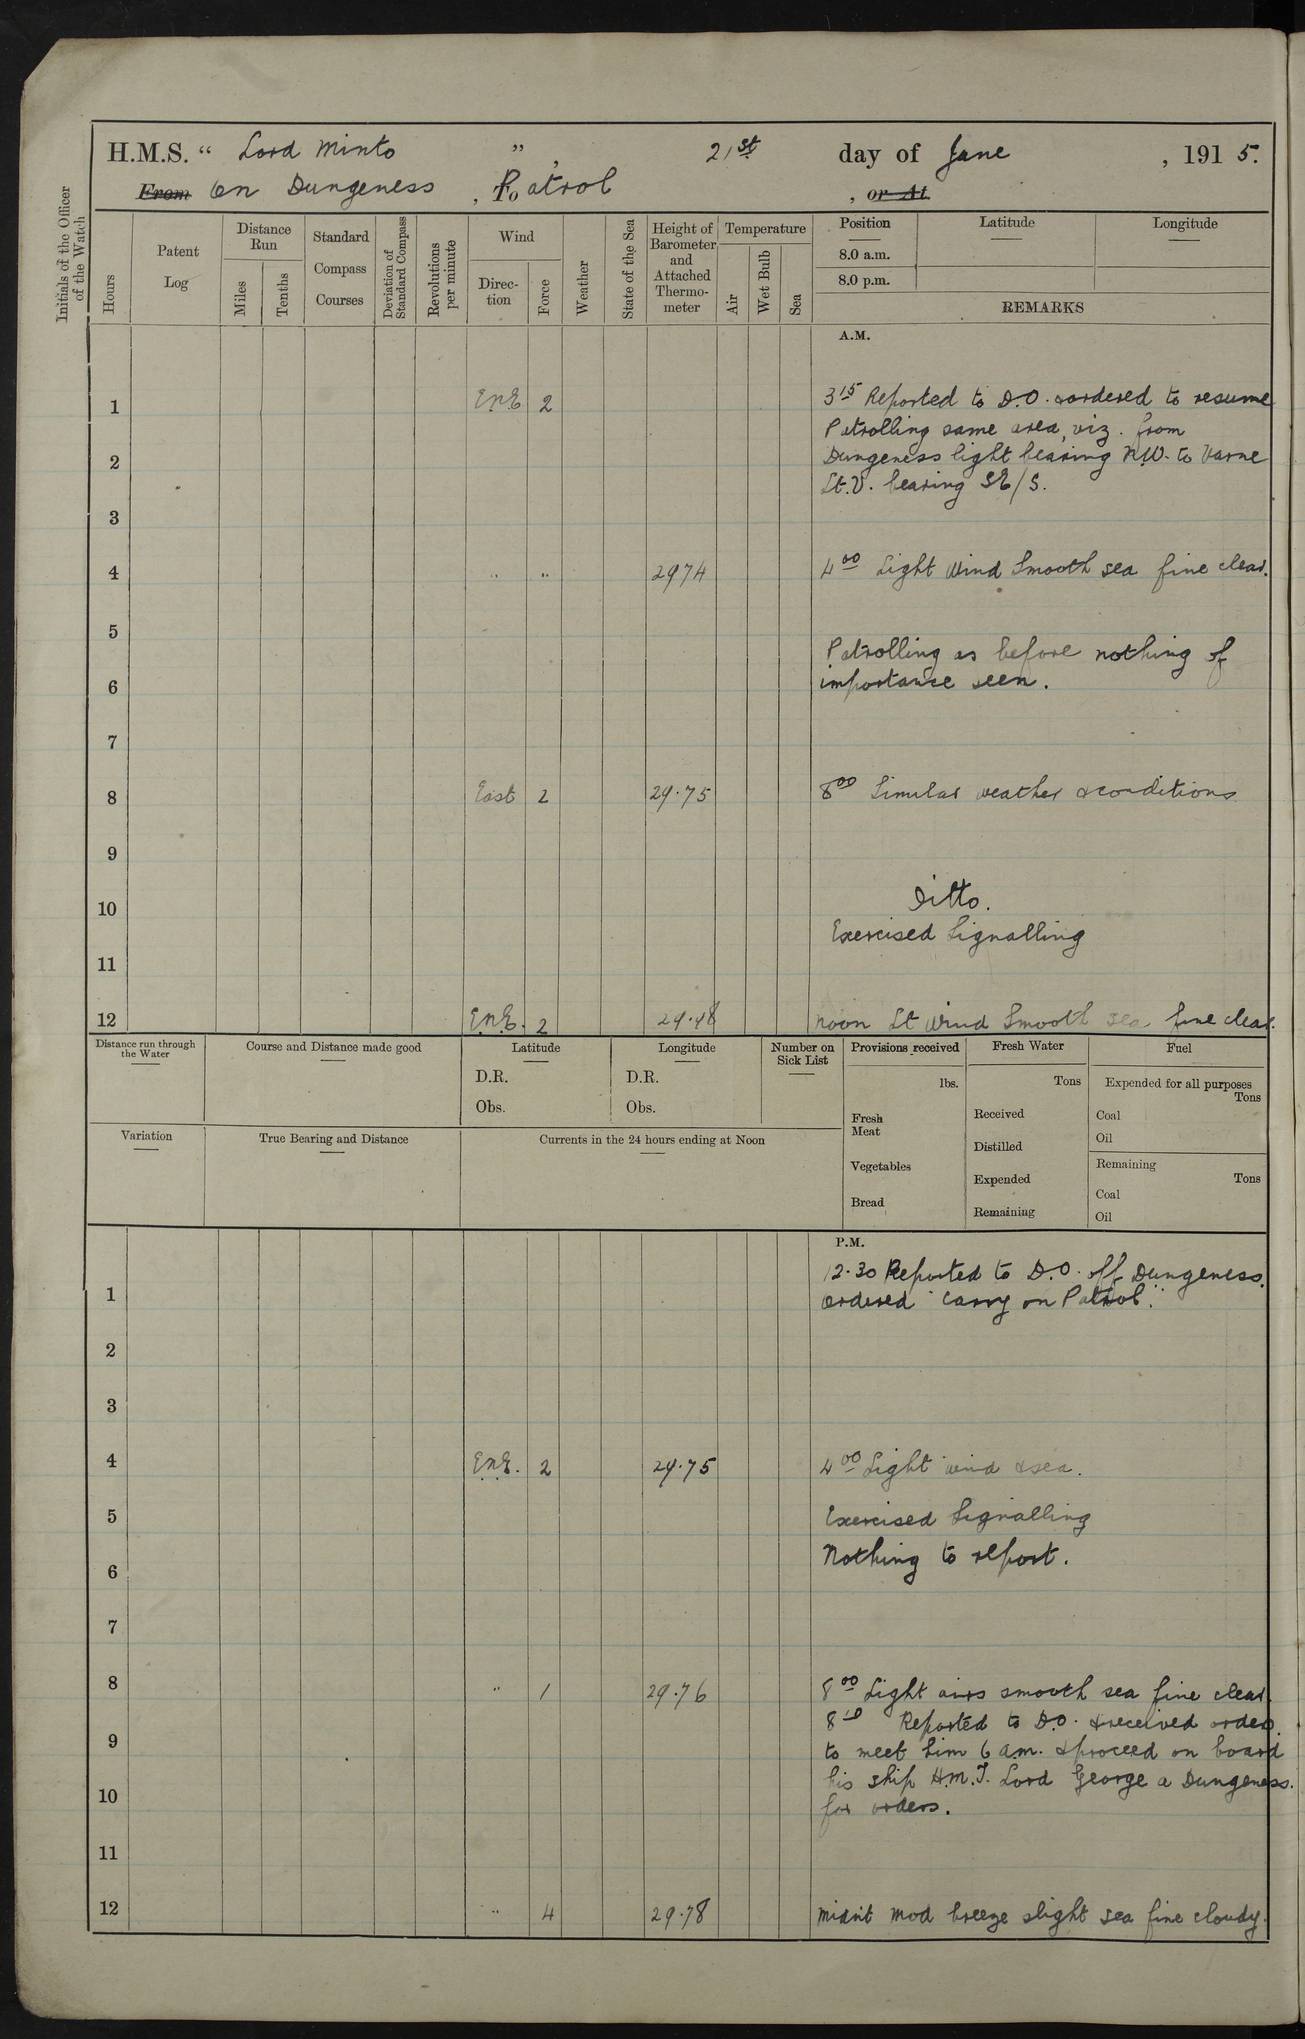 H.M.S. “ Lord Minto ” , 21st day of June , 1915.
From On Dungeness , To Patrol , or At
Initials of the Officer of the Watch
Hours
Patent Log
Distance Run
Miles
Tenths
Standard Compass Courses
Deviation of Standard Compass
Revolutions per minute
Wind
Direction
Force
Weather
State of the Sea
Height of Barometer and Attached Thermometer
Temperature
Air
Wet Bulb
Sea
Position Latitude Longitude
8.0 a.m.
8.0 p.m.
REMARKS
A.M.
1 E.N.E 2 3 15 Reported to D.O. & ordered to resume
Patrolling same area, viz. from
2 Dungeness light bearing N.W. to Varne
Lt.V. bearing SE/S.
3
4 " " 2974 4 00 Light Wind Smooth sea fine clear.
5 Patrolling as before nothing of
6 importance seen.
7
8 East 2 29.75 8 00 Similar weather & conditions
9
10 Ditto.
Exercised Signalling
11
12 E.N.E. 2 29.98 noon Lt Wind Smooth sea fine clear.
Distance run through the Water
Course and Distance made good
Latitude
D.R.
Obs.
Longitude
D.R.
Obs.
Number on Sick List
Provisions received
lbs.
Fresh Meat
Vegetables
Bread
Fresh Water
Tons
Received
Distilled
Expended
Remaining
Fuel
Expended for all purposes
Tons
Coal
Oil
Remaining
Tons
Coal
Oil
Variation
True Bearing and Distance
Currents in the 24 hours ending at Noon
P.M.
12.30 Reported to D.O. off Dungeness.
1 ordered "Carry on Patrol".
2
3
4 E.N.E. 2 29.75 4 00 Light wind & sea.
5 Exercised Signalling
Nothing to report.
6
7
8 " 1 29.76 8 00 Light airs smooth sea fine clear.
8 10 Reported to D.O. & received order
9 to meet him 6 a.m. & proceed on board
his ship H.M.T. Lord George a Dungeness.
10 for orders.
11
12 " 4 29.78 midn't mod breeze slight sea fine cloudy.